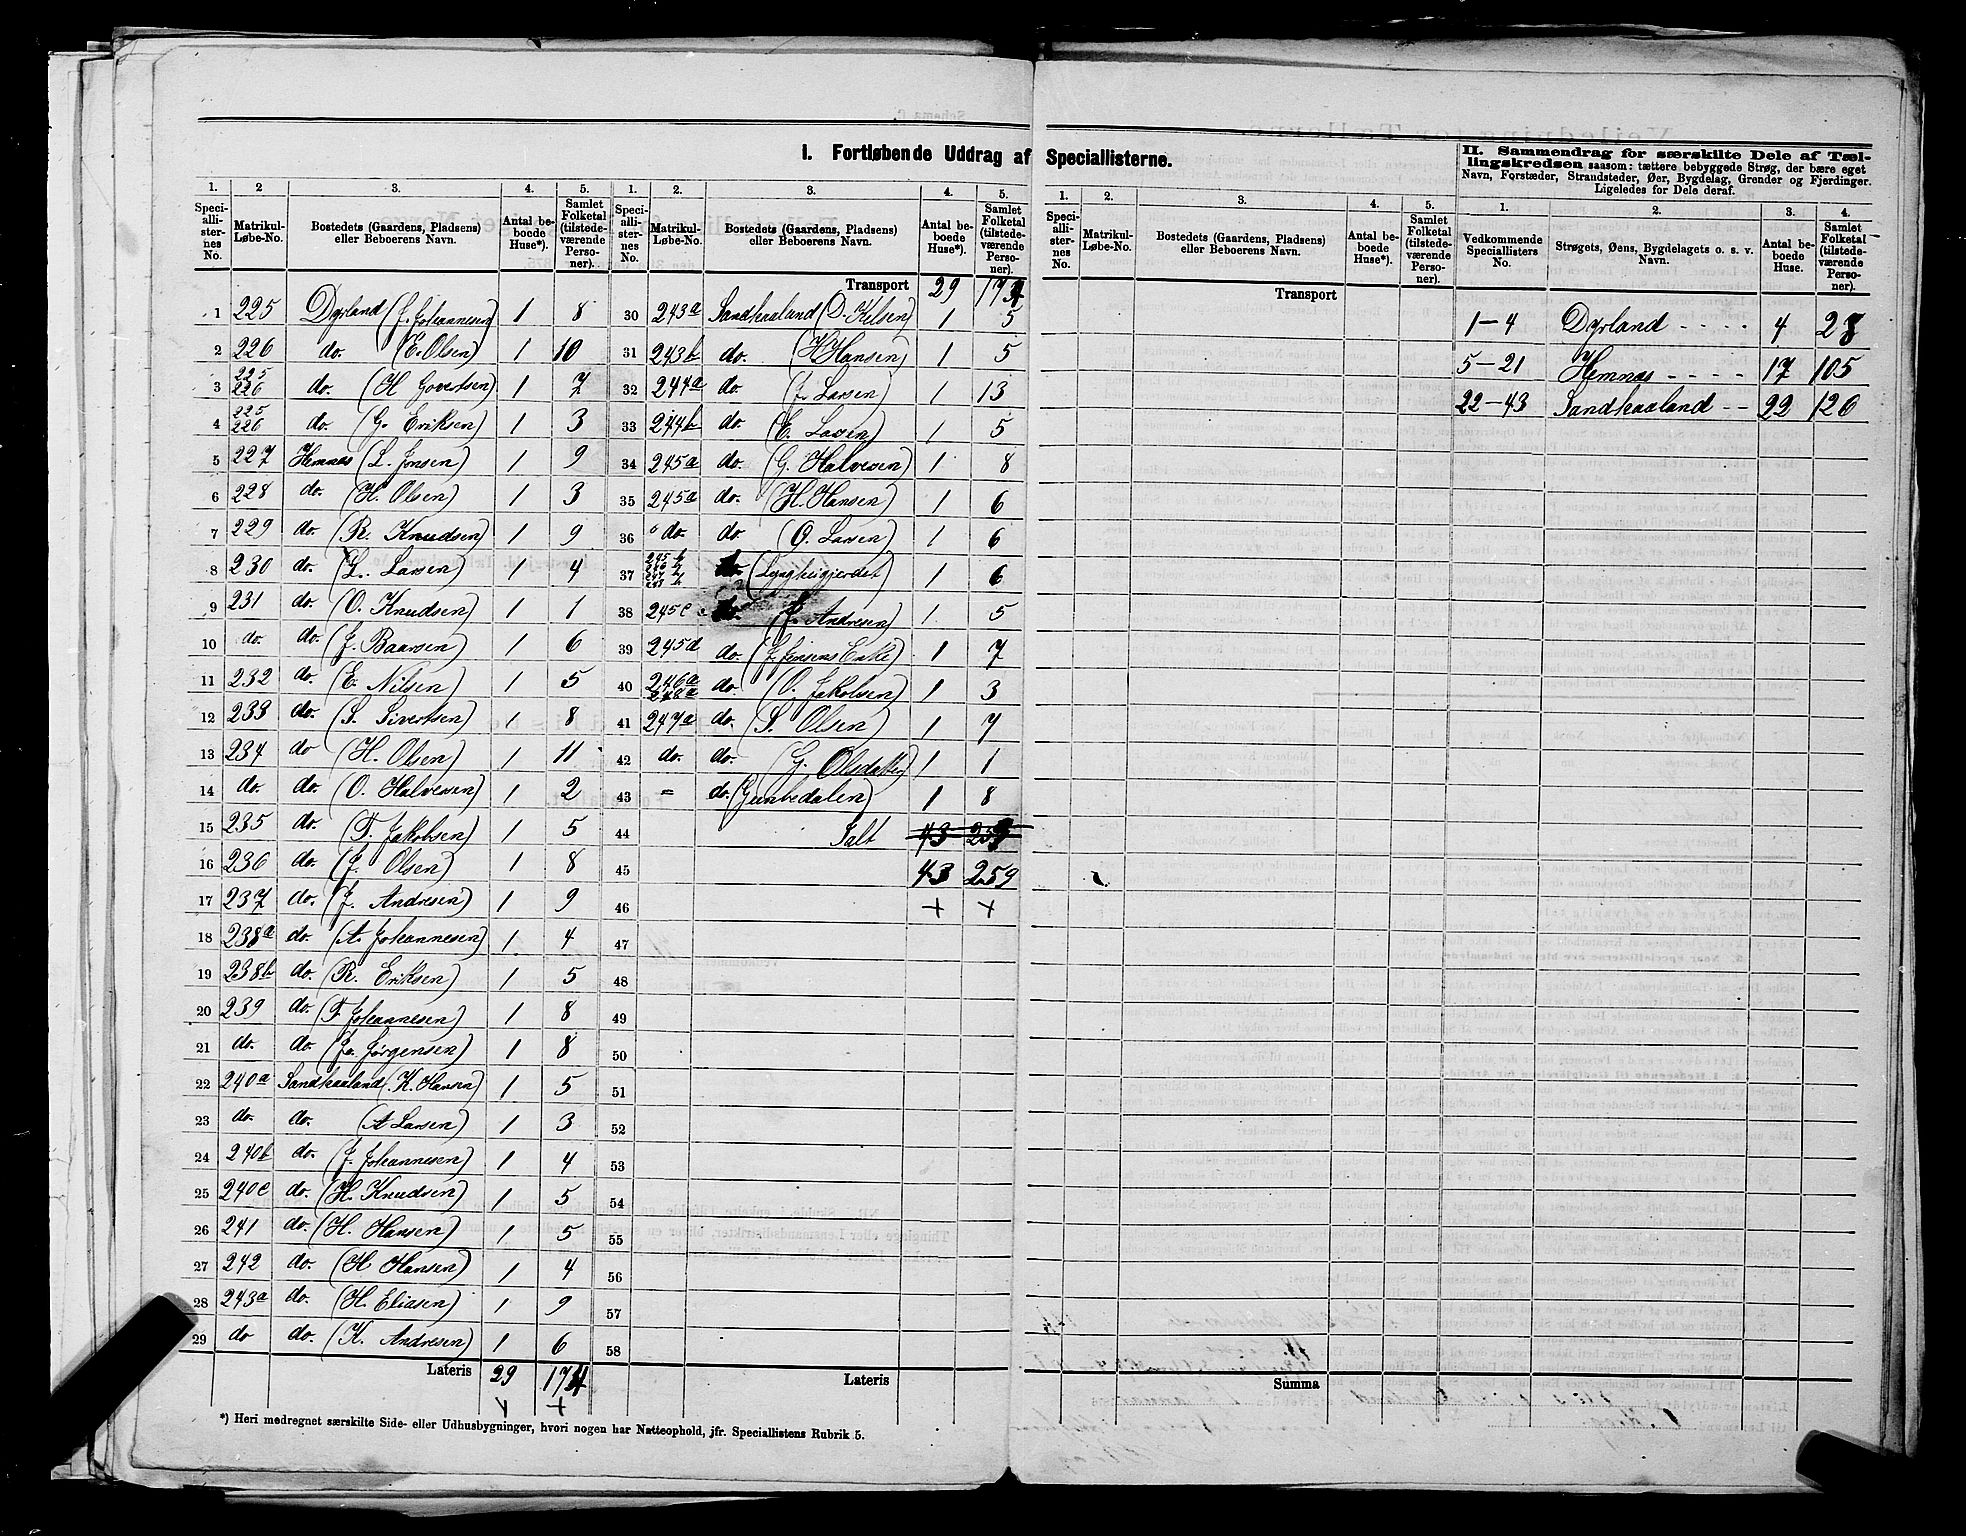 I. Fortløbende Uddrag af Speciallisterne.
II. Sammendrag for særskilte Dele af Tællingskredsen saasom: tættere bebyggede Strøg, der bære eget
Navn, Forstæder, Strandsteder, Øer, Bygdelag, Grender og Fjerdinger.
Ligeledes for Dele deraf.
1. 2 3. 4. 5.
Speciallisternes No. Matrikul-Løbe-No. Bostedets (Gaardens, Pladsens) eller Beboerens Navn. Antal beboede Huse*). Samlet Folketal (tilstedeværende Personer).
1 225 Dyrland (J. Johannesen) 1 8
2 226 do. (E. Olsen) 1 10
3 225 226 do. (H Govertsen) 1 7
4 225 226 do. (G. Eriksen) 1 3
5 227 Hemnæs (L. Jonsen) 1 9
6 228 do. (H. Olsen) 1 3
7 229 do. (R. Knudsen) 1 9
8 230 do. (L. Larsen) 1 4
9 231 do. (O. Knudsen) 1 1
10 do. do. (J. Baarsen) 1 6
11 232 do. (E. Nilsen) 1 5
12 233 do. (S. Sivertsen) 1 8
13 234 do (H. Olsen) 1 11
14 do. do. (O. Halvorsen) 1 2
15 235 do. (T. Jakobsen) 1 5
16 236 do. (J. Olsen) 1 8
17 237 do. (J. Andresen) 1 9
18 238a do. (A. Johannesen) 1 4
19 238b do. (R. Eriksen) 1 5
20 239 do. (T. Johannesen) 1 8
21 do. do. (Jo. Jørgensen) 1 8
22 240a Sandkaaland (K. Hansen) 1 5
23 do. do. (A Larsen) 1 3
24 240b do. (J. Johannesen) 1 4
25 240c do. (H. Knudsen) 1 5
26 241 do. (H. Hansen) 1 5
27 242 do. (H Hansen) 1 4
28 243a do. (H. Eliasen) 1 9
29 do do. (K. Andresen) 1 6
Lateris 29 174
*) Heri medregnet særskilte Side- eller Udhusbygninger, hvori nogen har Natteophold, jfr. Speciallistens Rubrik 5.
1. 2. 3. 4. 5.
Speciallisternes No. Matrikul-Løbe-No. Bostedets (Gaardens, Pladsens) eller Beboerens Navn. Antal beboede Huse*). Samlet Folketal (tilstedeværende Personer).
Transport 29 174
30 243a Sandkaaland (D. Kilsen) 1 5
31 243b do. (H Hansen) 1 5
32 244a do. (J. Larsen) 1 13
33 244b do. (E. Larsen) 1 5
34 245a do. (G. Halvorsen) 1 8
35 245a do. (H. Hansen) 1 6
36 do. do (O. Larsen) 1 6
37 do. (Lyngheigjerdet) 1 6
38 245c do. (J. Andresen) 1 5
39 245d do. (J. Jensens Enke) 1 7
40 246a 248a do. (O. Jakobsen) 1 3
41 247a do. (S. Olsen) 1 7
42 do. do. (G. Olsdatter) 1 1
43 = do. (Grinbedalen) 1 8
44 Ialt 43 253
45 43 259
46 + +
47
48
49
50
51
52
53
54
55
56
57
58
Lateris
1. 2. 3. 4. 5.
Speciallisternes No. Matrikul-Løbe-No. Bostedets (Gaardens, Pladsens) eller Beboerens Navn. Antal beboede Huse*). Samlet Folketal (tilstedeværende Personer).
Transport
Summa
1. 2. 3. 4.
Vedkommende Speciallisters No. Strøgets, Øens, Bygdelagets o. s. v. Navn. Antal beboede Huse. Samlet Folketal (tilstedeværende Personer).
1-4 Dyrland 4 28
5-21 Hemnæs 17 105
22-43 Sandkaaland 22 126